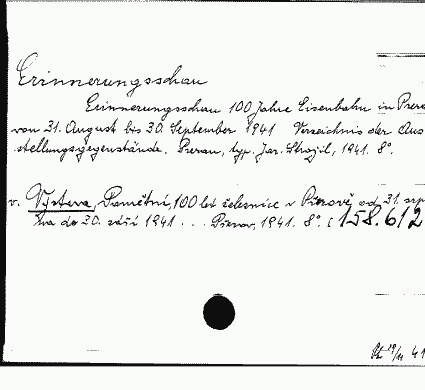 Erinnerungsschau
Erinnerungsschau 100 Jahre Eisenbahn in Prera
von 31. August bis 30. September 1941 Verzeichnis der Aus
stellungsgegenstände. Prerau, typ. Jar. Strojil, 1941. 8°.
v. Výstava, Památní, 100 let železnice v Přerově od 31. srp
na do 30. září 1941 . . . Přerov, 1941. 8°. [158.612
41